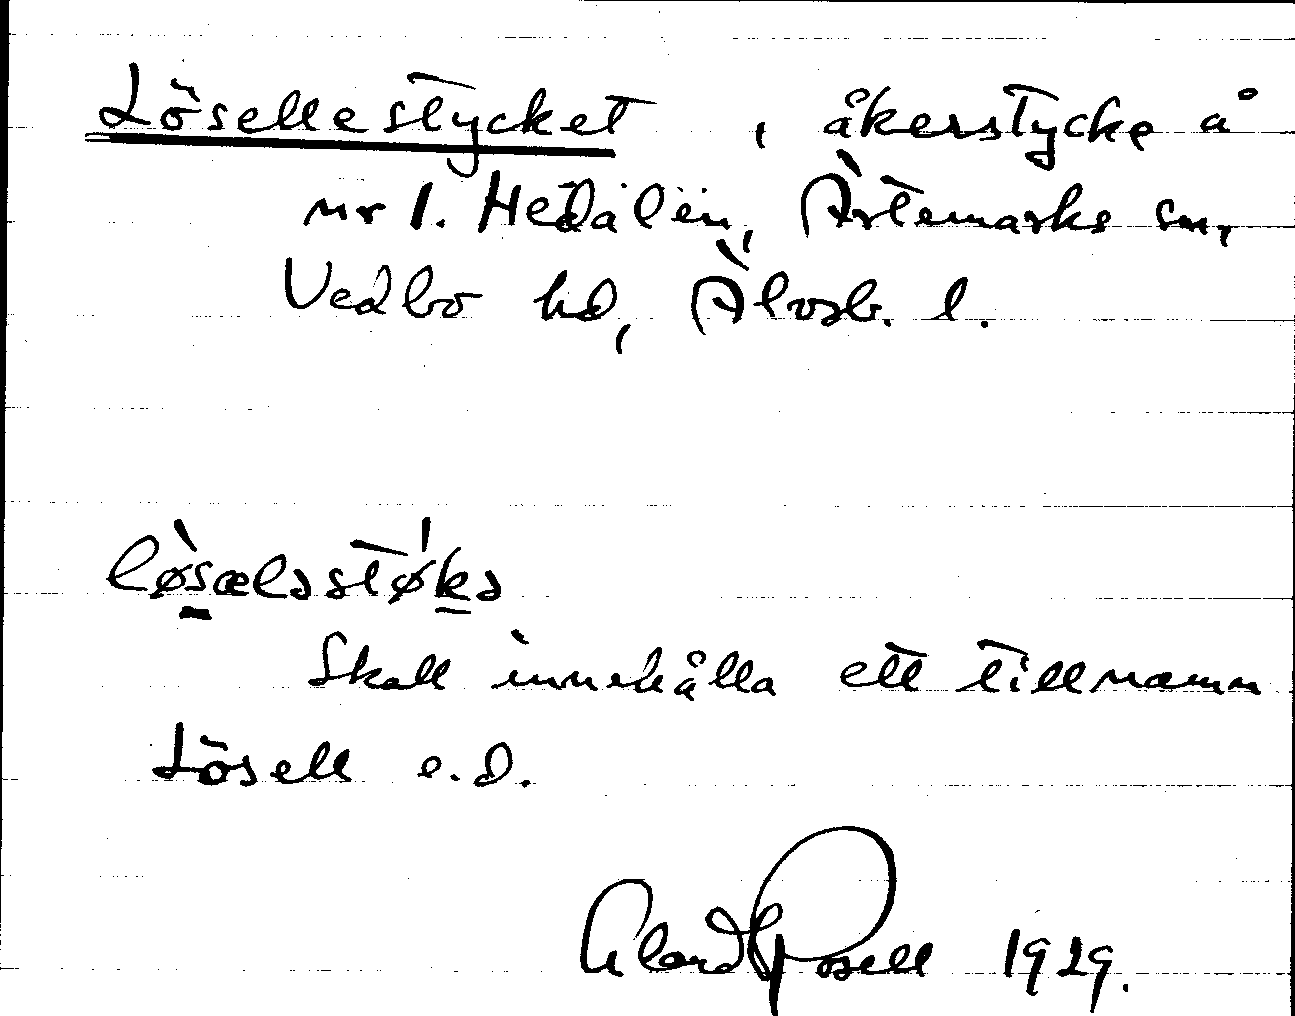 Lösellestycket, åkerstycke å
nr 1. Hedälën, Ärtemarks sn,
Vedbo hd, Älvsb. l.
lø̀sæləstø̍kə
Skall innehålla ett tillnamn
Lösell e.d.
Erland Rosell 1929.